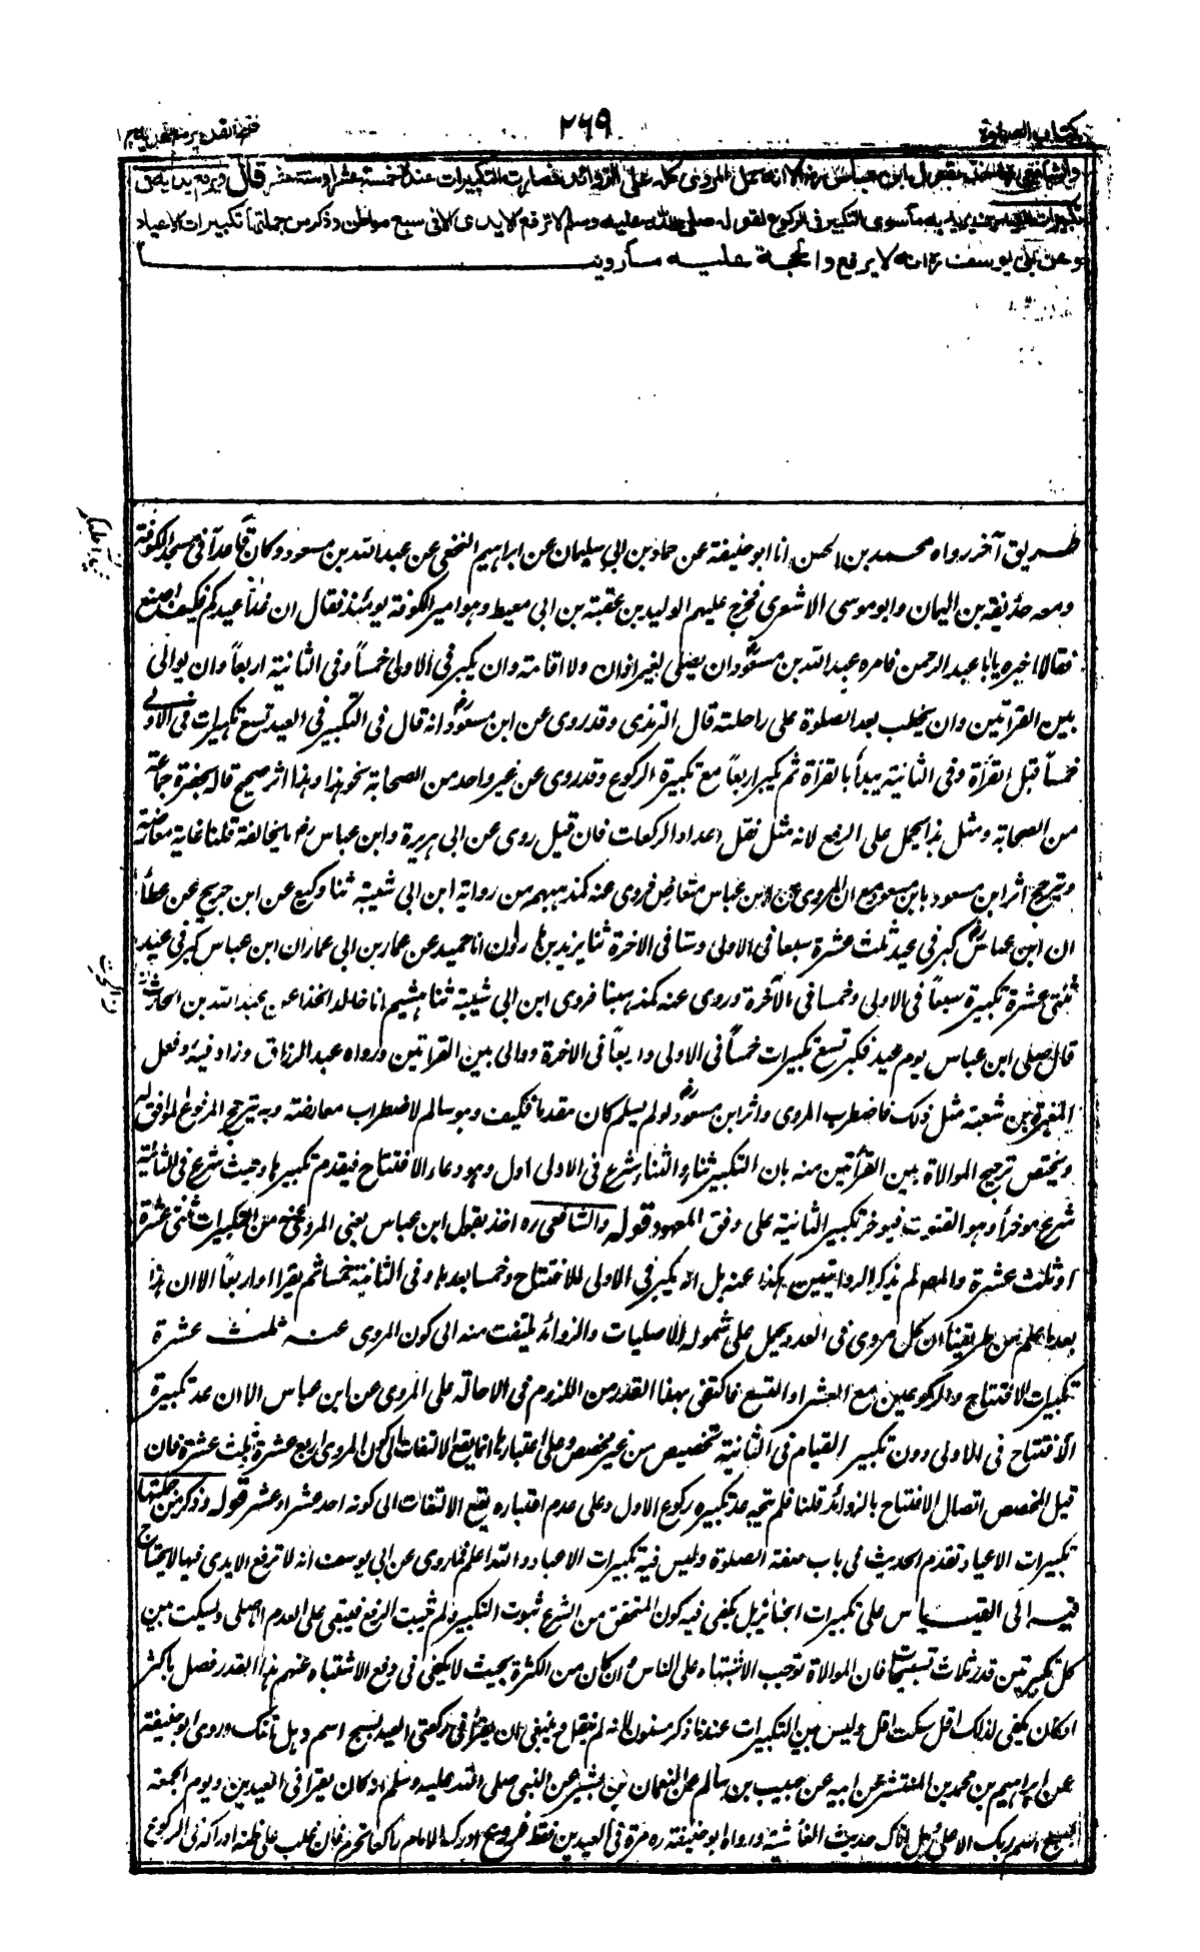 كتاب الصلوة
٢٦٩
فتح القدير مع الهداية ج ١
والشافعي اخذ بقول ابن عباس رض الا انه حمل المروي كله على الزوائد فصارت التكبيرات عنده خمسة عشر او ستة عشر قال ويرفع يديه في
تكبيرات العيدين يريد به ما سوى التكبير في الركوع لقوله صلى الله عليه وسلم لا ترفع الايدي الا في سبع مواطن وذكر من جملتها تكبيرات الاعياد
وعن ابي يوسف ره انه لا يرفع والحجة عليه ما روينا
طريق آخر رواه محمد بن الحسن انا ابو حنيفة عن حماد بن ابي سليمان عن ابراهيم النخعي عن عبد الله بن مسعود وكان قاعدا في مسجد الكوفة
ومعه حذيفة بن اليمان وابو موسى الاشعري فخرج عليهم الوليد بن عقبة بن ابي معيط وهو امير الكوفة يومئذ فقال ان غداً عيدكم فكيف اصنع
فقالا اخبره يا ابا عبد الرحمن فامره عبد الله بن مسعود ان يصلي بغير اذان ولا اقامة وان يكبر في الاولى خمساً وفي الثانية اربعاً وان يوالي
بين القرأتين وان يخطب بعد الصلوة على راحلته قال الترمذي وقد روى عن ابن مسعود انه قال في التكبير في العيد تسع تكبيرات في الاولى
خمساً قبل القرأة وفي الثانية يبدأ بالقرأة ثم يكبر اربعاً مع تكبيرة الركوع وقد روى عن غير واحد من الصحابة نحو هذا وهذا اثر صحيح قاله بحضرة جماعة
من الصحابة ومثل هذا يحمل على الرفع لانه مثل نقل اعداد الركعات فان قيل روى عن ابي هريرة وابن عباس رض ما يخالفه قلنا غاية معارضة
ويترجح اثر ابن مسعود بابن مسعود مع ان المروي عن ابن عباس متعارض فروى عنه كمذهبهم من رواية ابن ابي شيبة ثنا وكيع عن ابن جريج عن عطاء
ان ابن عباس كبر في عيد ثلث عشرة سبعا في الاولى وستا في الاخرة ثنا يزيد بن هارون انا حميد عن عمار بن ابي عمار ان ابن عباس كبر في عيد
ثنتي عشرة تكبيرة سبعاً في الاولى وخمسا في الآخرة وروى عنه كمذهبنا فروى ابن ابي شيبة ثنا هشيم انا خالد الحذاء عن عبد الله بن الحارث
قال صلى ابن عباس يوم عيد فكبر تسع تكبيرات خمساً في الاولى واربعاً في الاخرة ووالى بين القرأتين ورواه عبد الرزاق وزاد فيه وفعل
المغيرة بن شعبة مثل ذلك فاضطرب المروي واثر ابن مسعود لو لم يسلم كان مقدما فكيف وهو سالم لاضطراب معارضه وبه يترجح المرفوع الموافق له
ويختص ترجيح الموالاة بين القرأتين منه بان التكبير ثناء والثناء شرع في الاولى اول وهو دعاء الافتتاح فيقدم تكبيرها وحيث شرع في الثانية
شرع مؤخراً وهو القنوت فيؤخر تكبير الثانية على وفق المعهود قوله والشافعي ره اخذ بقول ابن عباس يعني المروي عنه من التكبيرات ثنتي عشرة
او ثلث عشرة والمص لم يذكر الروايتين هكذا عنه بل انه يكبر في الاولى للافتتاح وخمسا بعدها وفي الثانية خمسا ثم يقرأ او اربعاً الا ان هذا
بعد ما علم من طريقنا ان كل مروي في العدد يحمل على شموله للاصليات والزوائد يلتفت منه الى كون المروي عنه ثلث عشرة
تكبيرات الافتتاح والركوعين مع العشر او التسع فاكتفى بهذا القدر من اللزوم في الاحالة على المروي عن ابن عباس الا ان عد تكبيرة
الافتتاح في الاولى دون تكبير القيام في الثانية تخصيص من غير مخصص وعلى اعتبارها انما يقع الالتفات الى كون المروي اربع عشرة وثلث عشرة فان
قيل المخصص اتصال الافتتاح بالزوائد قلنا فلم تجه عد تكبيره ركوع الاول وعلى عدم اعتباره يقع الالتفات الى كونه احد عشر او عشر قوله وذكر من جملتها
تكبيرات الاعياد تقدم الحديث في باب صفة الصلوة وليس فيه تكبيرات الاعياد والله اعلم فما روى عن ابي يوسف انه لا ترفع الايدي فيها لا يحتاج
فيه الى القياس على تكبيرات الجنائز بل يكفي فيه كون المتحقق من الشرع ثبوت التكبير ولم يثبت الرفع فيبقى على العدم الاصلي ويسكت بين
كل تكبيرتين قدر ثلاث تسبيحات فان الموالاة توجب الاشتباه على الناس وان كان من الكثرة بحيث لا يكفي في دفع الاشتباه عنهم هذا القدر فصل باكثر
او كان يكفي لذلك اقل سكت اقل وليس بين التكبيرات عندنا ذكر مسنون لانه لم ينقل وينبغي ان يقرأ في ركعتي العيد بسبح اسم وهل اتاك وروى ابو حنيفة
عن ابراهيم بن محمد بن المنتشر عن ابيه عن حبيب بن سالم عن النعمان بن بشير عن النبي صلى الله عليه وسلم انه كان يقرأ في العيدين ويوم الجمعة
بسبح اسم ربك الاعلى وهل اتاك حديث الغاشية ورواه ابو حنيفة ره مرة في العيدين فقط فروع ادرك الامام راكعا تحرم فان غلب على ظنه ادراكه في الركوع